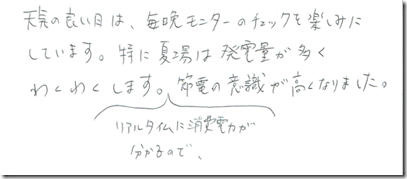 天気の良い日は、毎晩モニターのチェックを楽しみに
しています。特に夏場は発電量が多く
わくわくします。節電の意識が高くなりました。
リアルタイムに消費電力が
分かるので、